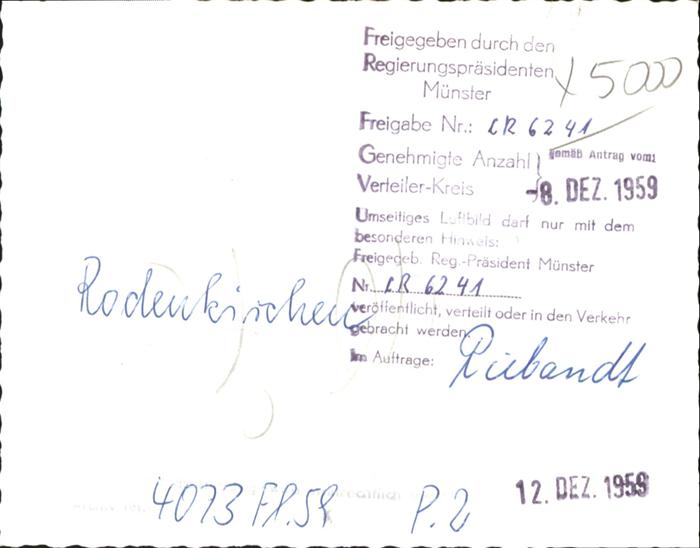 Freigegeben durch den
Regierungspräsidenten
Münster
x 5000
Freigabe Nr.: CR 6241
Genehmigte Anzahl } gemäß Antrag vom:
Verteiler-Kreis
-8. DEZ. 1959
Umseitiges Luftbild darf nur mit dem
besonderen Hinweis:
Freigegeb. Reg.-Präsident Münster
Nr. CR 6241
veröffentlicht, verteilt oder in den Verkehr
gebracht werden.
Rodenkirchen
Im Auftrage:
4073 P. 2
12. DEZ. 1959